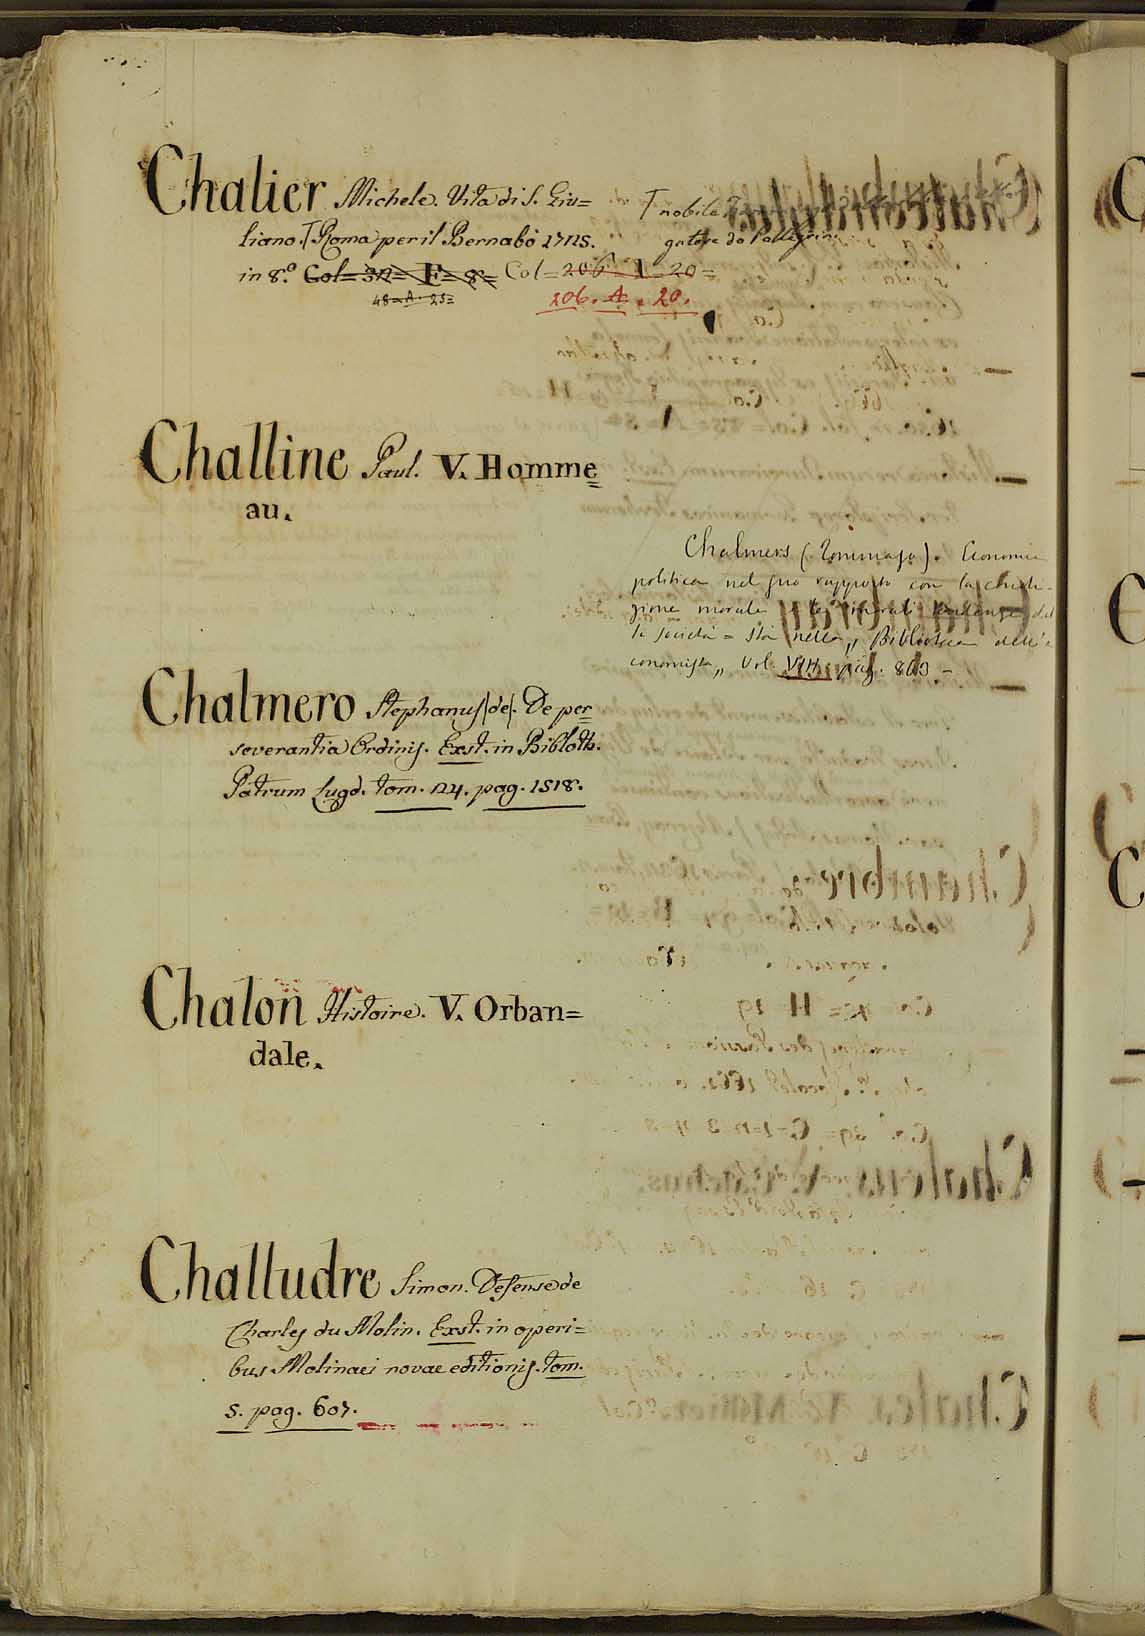 Chalier Michele. Vita di S. Giu=
liano. Roma per il Bernabò 1725.
nobile
gatore da Pellegrini
in 8.º Col= 32= F= 8= Col= 206 A 20=
48=A= 25=
206. A. 20.
Challine Paul. V. Homme=
au.
Chalmers (Tommaso). Economia
politica nel suo rapporto con la
morale
la società = sta nella „ Biblioteca dell'e
conomista „ Vol. VIII pag. 863. -
Chalmero Stephanus (de). De per=
severantia Ordinis. Exst. in Biblioth.
Patrum Lugd. tom. 24. pag. 1518.
Chalon Histoire. V. Orban=
dale.
Challudre Simon. Defense de
Charles du Molin. Exst. in operi=
bus Molinaei novae editionis. tom.
5. pag. 607.